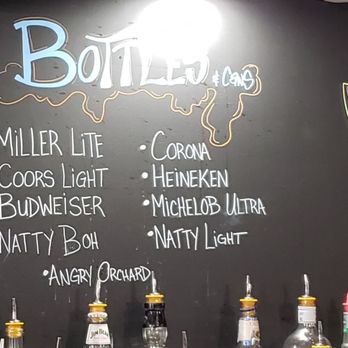 BOTTLES & CANS
MILLER LITE
COORS LIGHT
BUDWEISER
NATTY BOH
• CORONA
• HEINEKEN
• MICHELOB ULTRA
• NATTY LIGHT
• ANGRY ORCHARD
JIM BEAM